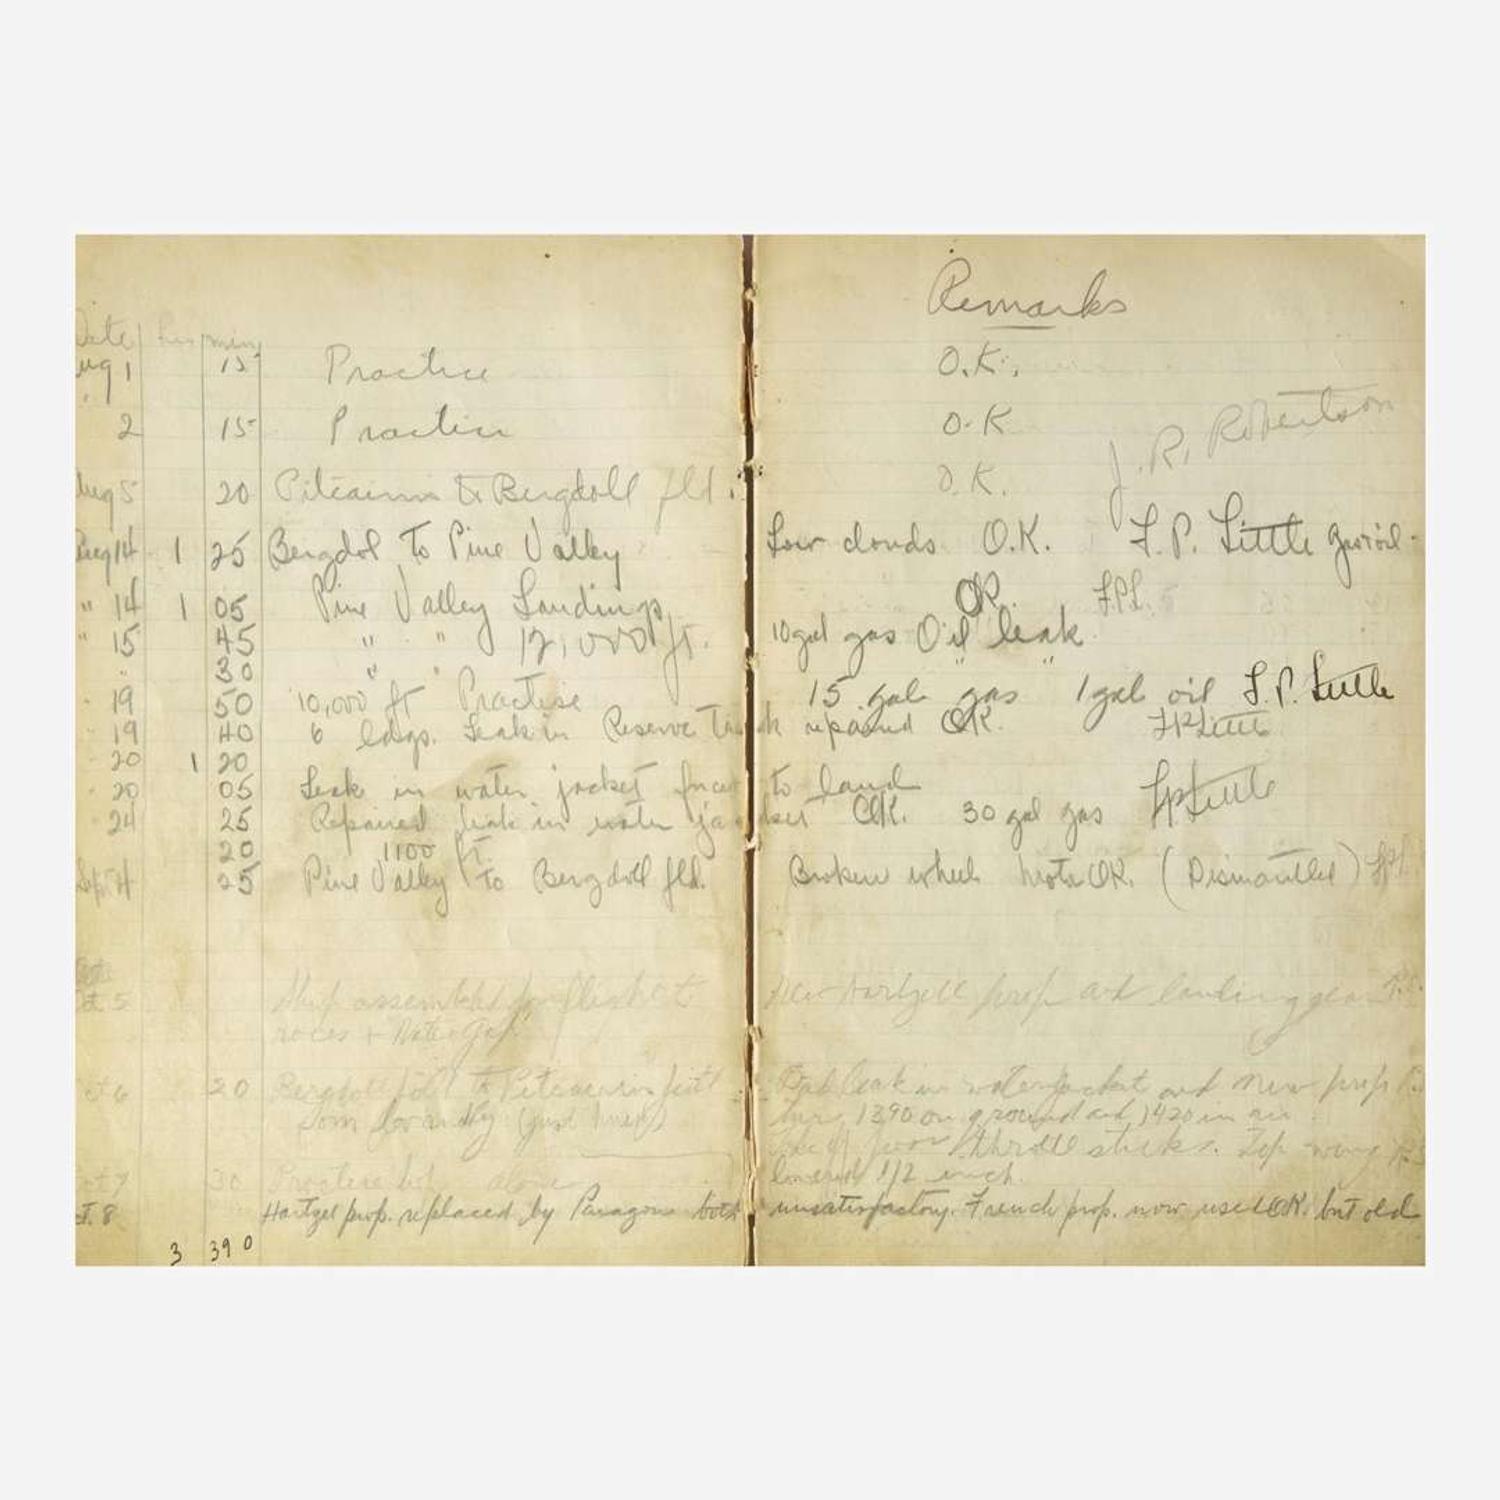 Remarks
Date hrs min
Aug 1 15 Practice O.K.
2 15 Practice O.K J. R. Robertson
Aug 5 20 Pitcairn to Bergdoll fld. O.K.
Aug 14 1 25 Bergdol To Pine Valley Low clouds O.K. F.P. Little Gas & oil
" 14 1 05 Pine Valley Landings OK. FPL.
" 15 45 " " 12,000 ft. 10 gal gas Oil leak
" 30 " " " "
" 19 50 10,000 ft Practise 15 gal gas 1 gal oil F.P. Little
" 19 40 6 ldgs. Leak in Reserve Tank repaired OK. FPLittle
" 20 1 20
" 20 05 Leak in water jacket forced to land FPLittle
" 24 25 Repaired leak in water jacket OK. 30 gal gas
20 1100 ft.
Sept 4 25 Pine Valley To Bergdoll fld. Broken wheel Motor OK. (Dismantled) FPL
Oct 5 Ship assembled for flight New Hartzell prop and landing gear
races + Water Gap
Oct 6 20 Bergdoll fld to Pitcairn leak in water jacket and new prop
1390 on ground and 1420 in air
poor throttle sticks. Top wing
Oct 7 30 Practice hop alone lowered 1/2 inch.
Oct. 8 Hartzel prop. replaced by Paragon both unsatisfactory. French prop. now used OK. but old
3 390